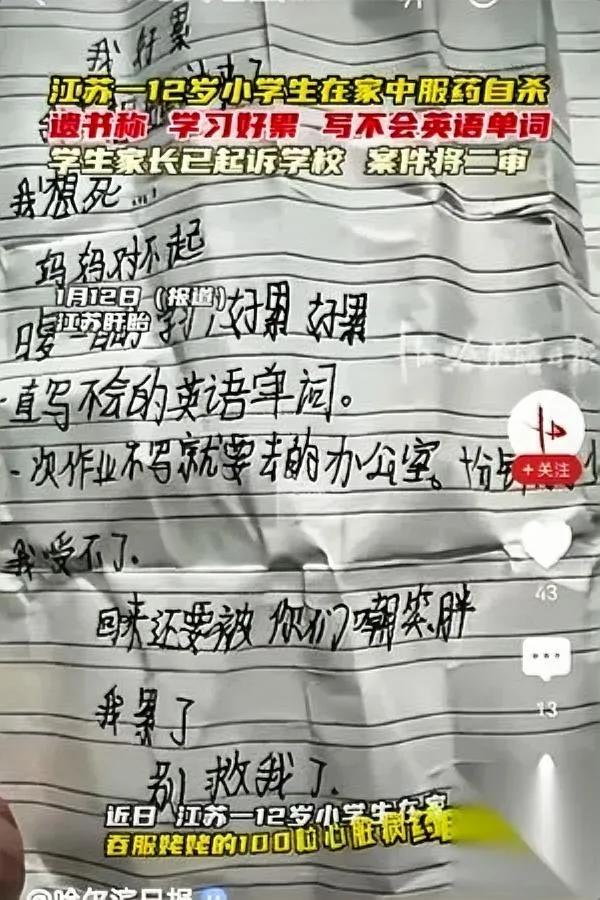 我好累
江苏一12岁小学生在家中服药自杀
遗书称 学习好累 写不会英语单词
学生家长已起诉学校 案件将二审
我想死...
妈妈对不起
1月12日（报道）
江苏盱眙
日复一日的学习 好累 好累
一直写不会的英语单词。
一次作业不写就要去的办公室。十分钟
我受不了.
+关注
43
回来还要被你们嘲笑胖
13
我累了
别救我了.
近日 江苏一12岁小学生在家
吞服姥姥的100粒心脏病药
@哈尔滨日报